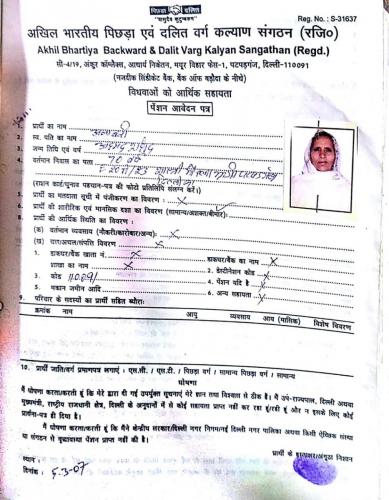 पिछड़ा दलित
"वसुधैव कुटुम्बकम्"
Reg. No. : S-31637
अखिल भारतीय पिछड़ा एवं दलित वर्ग कल्याण संगठन (रजि०)
Akhil Bhartiya Backward & Dalit Varg Kalyan Sangathan (Regd.)
सी-4/19, अंकुर कॉम्प्लैक्स, आचार्य निकेतन, मयूर विहार फेस-1, पटपड़गंज, दिल्ली-110091
(नजदीक सिंडीकेट बैंक, बैंक ऑफ बड़ौदा के नीचे)
विधवाओं को आर्थिक सहायता
पेंशन आवेदन पत्र
1. प्रार्थी का नाम
2. स्व. पति का नाम
3. जन्म तिथि एवं वर्ष 70 वर्ष
4. वर्तमान निवास का पता
(राशन कार्ड/चुनाव पहचान-पत्र की फोटो प्रतिलिपि संलग्न करें)
5. प्रार्थी का मतदाता सूची में पंजीकरण का विवरण : X
6. प्रार्थी की शारीरिक एवं मानसिक दशा का विवरण (सामान्य/अशक्त/बीमार):
8. प्रार्थी की आर्थिक स्थिति का विवरण :
(क) वर्तमान व्यवसाय (नौकरी/कारोबार/अन्य): X
(ख) चल/अचल संपत्ति विवरण : X
1. डाकघर/बैंक खाता नं. X डाकघर/बैंक का नाम X
शाखा का नाम X 2. डेस्टीनेशन कोड X
3. कोड 110091 4. पेंशन यदि है X
5. मकान जमीन आदि 6. अन्य सहायता X
9. परिवार के सदस्यों का प्रार्थी सहित ब्यौरा:
क्रमांक नाम आयु व्यवसाय आय (मासिक) विशेष विवरण
10. प्रार्थी जाति/वर्ग प्रमाणपत्र लगाएं : एस.सी. / एस.टी. / पिछड़ा वर्ग / सामान्य वर्ग / सामान्य
घोषणा
मैं घोषणा करता/करती हूं कि मेरे द्वारा दी गई उपर्युक्त सूचनाएं मेरे ज्ञान तथा विश्वास से ठीक है। मैं उप-राज्यपाल, दिल्ली अथवा
मुख्यमंत्री, राष्ट्रीय राजधानी क्षेत्र, दिल्ली के अनुदानों में से कोई सहायता प्राप्त नहीं कर रहा हूं/रही हूं और न इसके लिए कोई
प्रार्थना-पत्र ही दिया है।
मैं घोषणा करता/करती हूं कि मैंने केन्द्रीय सरकार/दिल्ली नगर निगम/नई दिल्ली नगर पालिका अथवा किसी ऐच्छिक संस्था
या संगठन से वृद्धावस्था पेंशन प्राप्त नहीं की है।
स्थान : प्रार्थी के हस्ताक्षर/अंगूठा निशान
दिनांक : 5-3-07